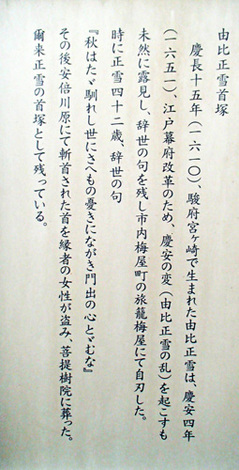 由比正雪首塚
慶長十五年(一六一〇)、駿府宮ヶ崎で生まれた由比正雪は、慶安四年
(一六五一)、江戸幕府改革のため、慶安の変(由比正雪の乱)を起こすも
未然に露見し、辞世の句を残し市内梅屋町の旅籠梅屋にて自刃した。
時に正雪四十二歳、辞世の句
『秋はたゞ馴れし世にさへもの憂きにながき門出の心とゞむな』
その後安倍川原にて斬首された首を縁者の女性が盗み、菩提樹院に葬った。
爾来正雪の首塚として残っている。